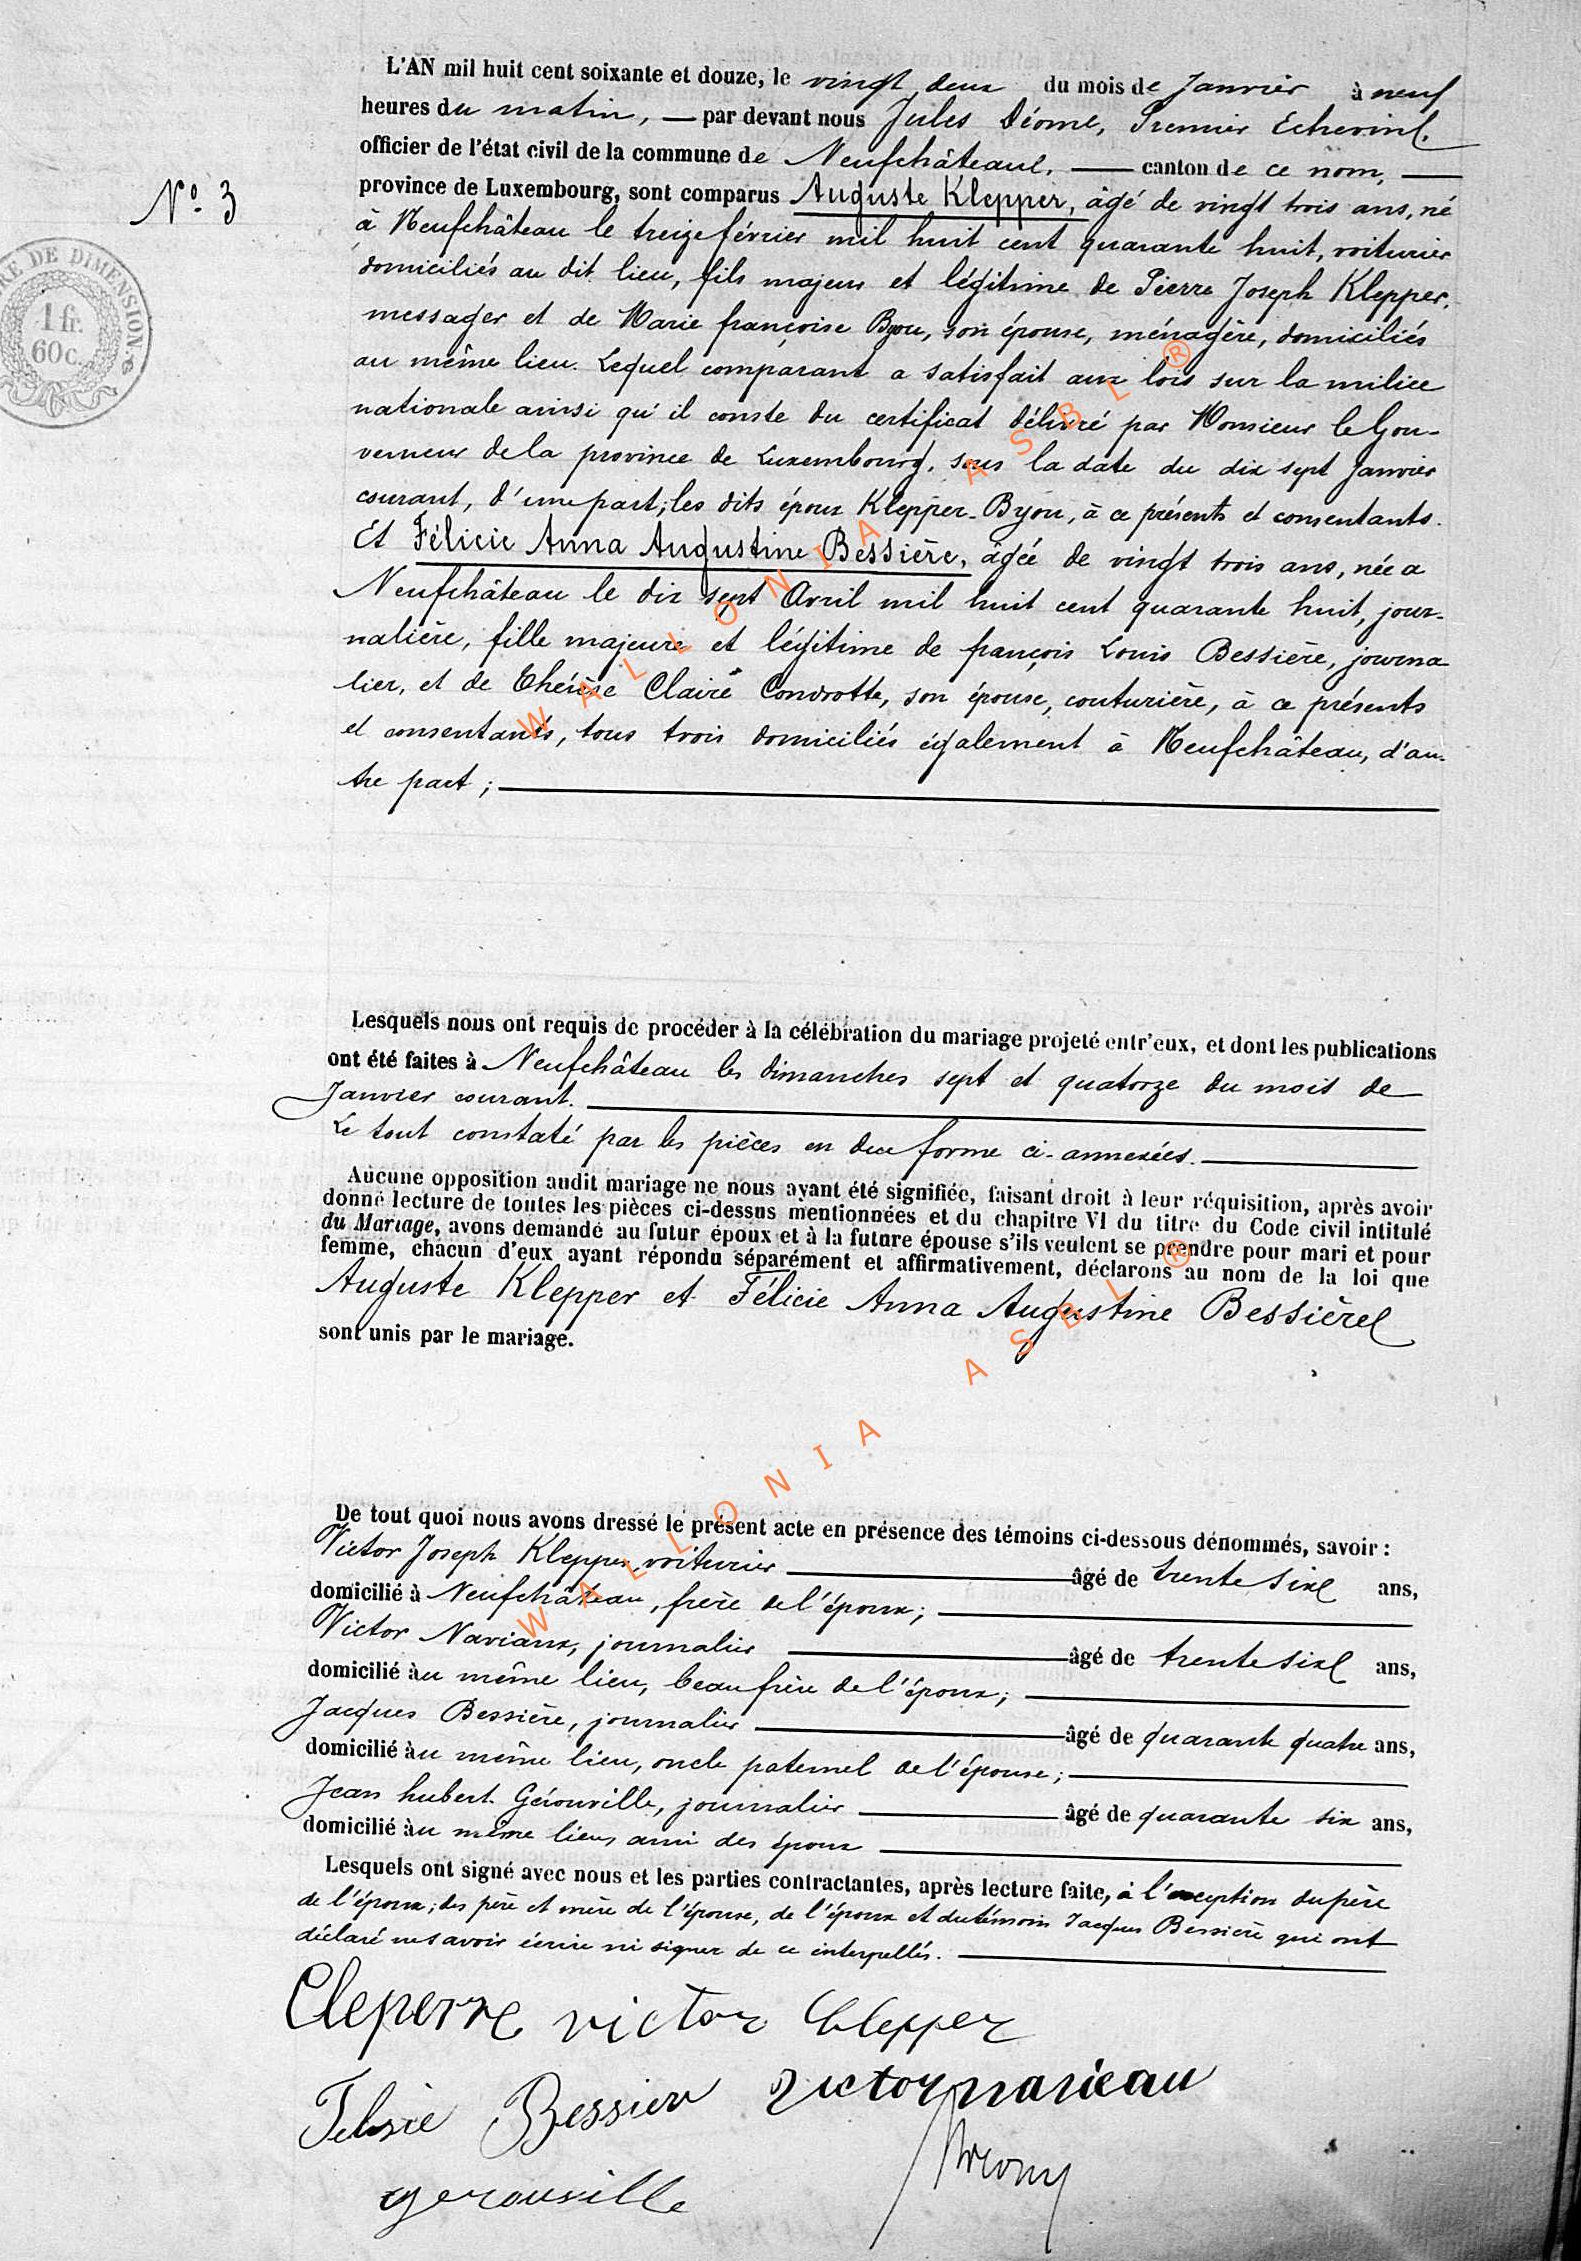 L'AN mil huit cent soixante et douze, le vingt deux du mois de Janvier à neuf
heures du matin, — par devant nous Jules Déome, Premier Echevin,
officier de l'état civil de la commune de Neufchâteau, — canton de ce nom, —
N° 3
province de Luxembourg, sont comparus Auguste Klepper, âgé de vingt trois ans, né
à Neufchâteau le treize février mil huit cent quarante huit, voiturier
domiciliés au dit lieu, fils majeur et légitime de Pierre Joseph Klepper,
messager et de Marie françoise Byou, son épouse, ménagère, domiciliés
au même lieu. Lequel comparant a satisfait aux lois sur la milice
nationale ainsi qu'il conste du certificat délivré par Monsieur le Gou-
verneur de la province de Luxembourg, sous la date du dix sept Janvier
courant, d'une part; les dits époux Klepper-Byou, à ce présents et consentants.
Et Félicie Anna Augustine Bessière, âgée de vingt trois ans, née a
Neufchâteau le dix sept Avril mil huit cent quarante huit, jour-
nalière, fille majeure et légitime de françois Louis Bessière, journa
lier, et de Thérèse Claire Condrotte, son épouse, couturière, à ce présents
et consentants, tous trois domiciliés également à Neufchâteau, d'au-
tre part ;
TIMBRE DE DIMENSION
1 fr.
60 c.
Lesquels nous ont requis de procéder à la célébration du mariage projeté entr'eux, et dont les publications
ont été faites à Neufchâteau les dimanches sept et quatorze du mois de
Janvier courant.
Le tout constaté par les pièces en due forme ci-annexées.
Aucune opposition audit mariage ne nous ayant été signifiée, faisant droit à leur réquisition, après avoir
donné lecture de toutes les pièces ci-dessus mentionnées et du chapitre VI du titre du Code civil intitulé
du Mariage, avons demandé au futur époux et à la future épouse s'ils veulent se prendre pour mari et pour
femme, chacun d'eux ayant répondu séparément et affirmativement, déclarons au nom de la loi que
Auguste Klepper et Félicie Anna Augustine Bessière
sont unis par le mariage.
De tout quoi nous avons dressé le présent acte en présence des témoins ci-dessous dénommés, savoir :
Victor Joseph Klepper, voiturier âgé de trente six ans,
domicilié à Neufchâteau, frère de l'époux;
Victor Naviaux, journalier âgé de trente six ans,
domicilié au même lieu, beau frère de l'époux;
Jacques Bessière, journalier âgé de quarante quatre ans,
domicilié au même lieu, oncle paternel de l'épouse;
Jean hubert Gérouville, journalier âgé de quarante six ans,
domicilié au même lieu ami des époux
Lesquels ont signé avec nous et les parties contractantes, après lecture faite, à l'exception du père
de l'époux; des père et mère de l'épouse, de l'époux et du témoin Jacques Bessière qui ont
déclaré ne savoir écrire ni signer de ce interpellés.
victor Clepper
Bessier victor
gerouville
WALLONIA ASBL ®
WALLONIA ASBL ®